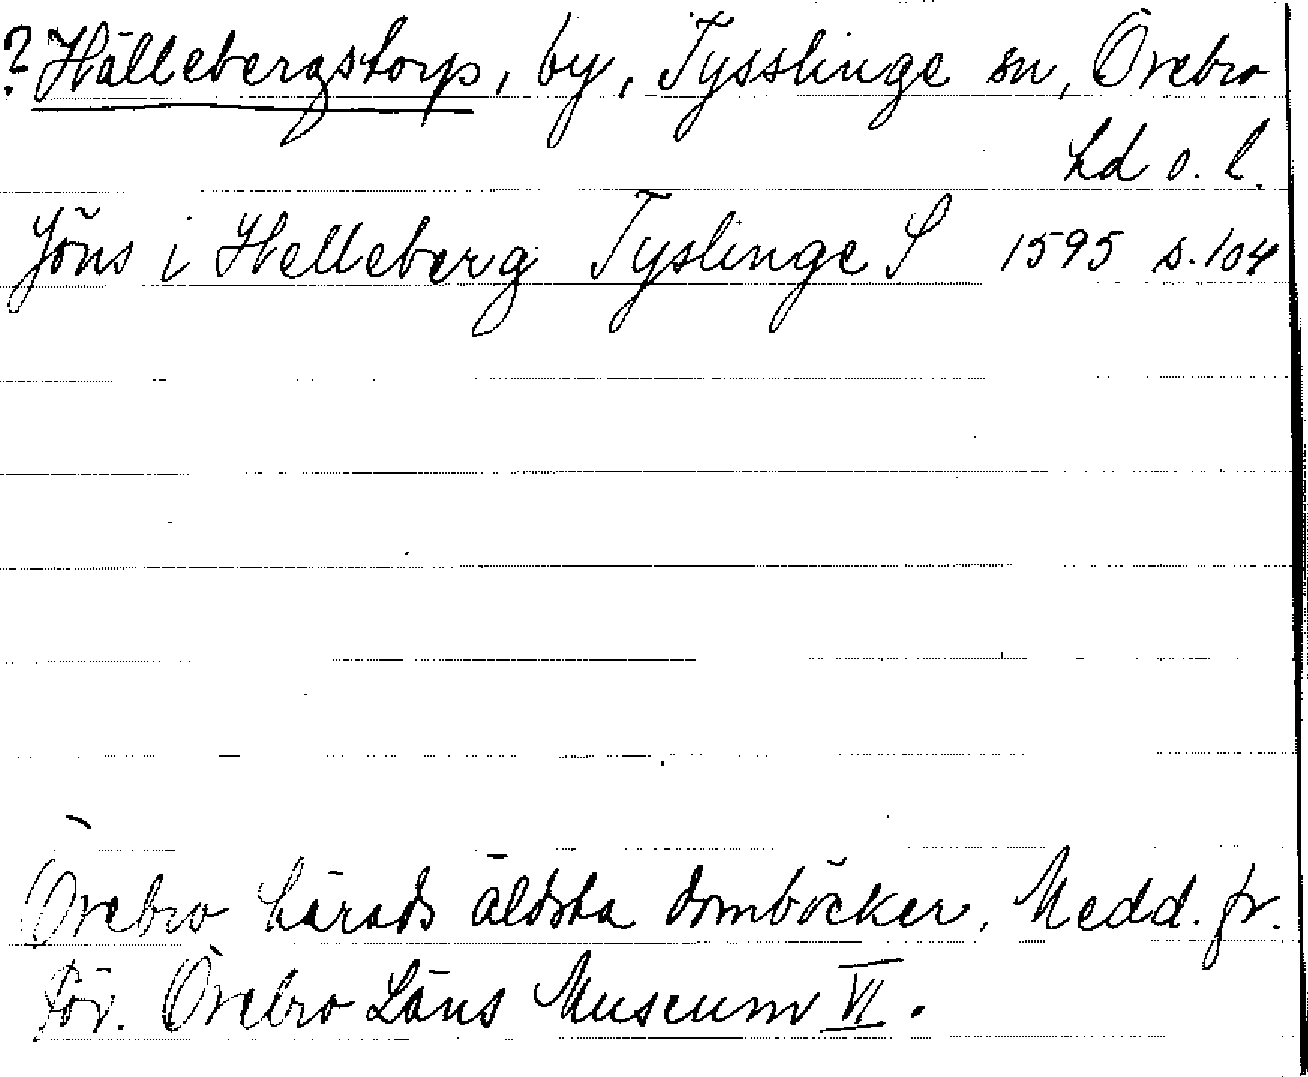 ? Hällebergstorp, by, Tysslinge sn, Örebro
hd o. l.
Jöns i Helleberg Tyslinge S 1595 s. 104
Örebro härads äldsta domböcker. Medd. fr.
för. Örebro Läns Museum VI.